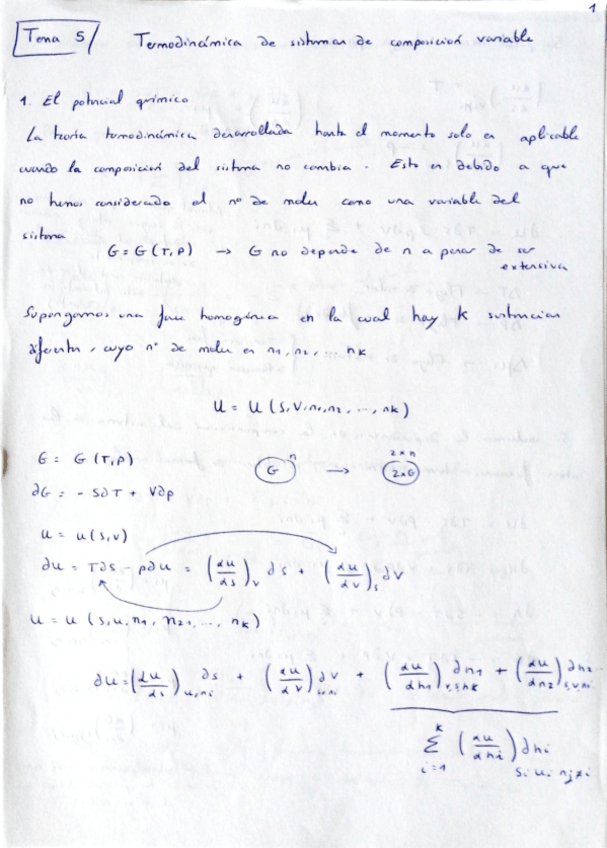 1
Tema 5/ Termodinámica de sistemas de composición variable
1. El potencial químico
La teoría termodinámica desarrollada hasta el momento solo es aplicable
cuando la composición del sistema no cambia. Esto es debido a que
no hemos considerado el nº de moles como una variable del
sistema
G = G(T,P) → G no depende de n a pesar de ser
extensiva
Supongamos una fase homogénea en la cual hay K sustancias
diferentes, cuyo nº de moles es n1, n2, nK
U = U(S,V,n1,n2, ..., nK)
G = G(T,P) G n → 2×n 2×G
∂G = -S∂T + V∂p
U = U(S,V)
∂U = T∂S - p∂U = (∂U/∂S)V ∂S + (∂U/∂V)S ∂V
U = U (S,U,n1, n2, ..., nK)
∂U = (∂U/∂S)U,ni ∂S + (∂U/∂V)S,ni ∂V + (∂U/∂n1) ∂n1 + (∂U/∂n2)S,V,ni ∂n2
K Σ i=1 (∂U/∂ni) ∂ni S, U, nj≠i